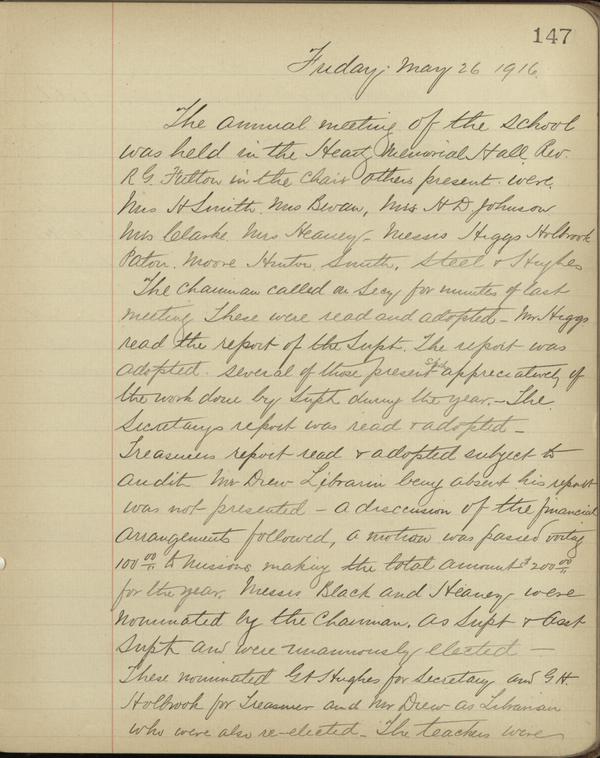 147
Friday. May 26 1916.
The annual meeting of the school
was held in the Heartz Memorial Hall, Rev.
R G. Fulton in the chair others present were,
Mrs H Smith. Mrs Bevan, Mrs H D Johnson
Mrs Clarke. Mrs Heaney - Messrs Higgs Holbrook
Paton. Moore Hinton Smith, Steel & Hughes
The Chairman called on Secy for minutes of last
meeting These were read and adopted - Mr Higgs
read the report of the Supt. The report was
adopted. several of those present spoke appreciatively of
the work done by Supt during the year. - The
Secretarys report was read & adopted -
Treasurers report read & adopted subject to
audit Mr Drew Librarian being absent his report
was not presented - a discussion of the financial
arrangements followed, a motion was passed voting
100 00 to missions making the total amount $ 200 00
for the year. Messrs Black and Heaney were
nominated by the Chairman. as Supt & Asst
Supt and were unanimously elected -
These nominated Hughes for Secretary and G H.
Holbrook for Treasurer and Mr Drew as Librarian
who were also re-elected - The teachers were